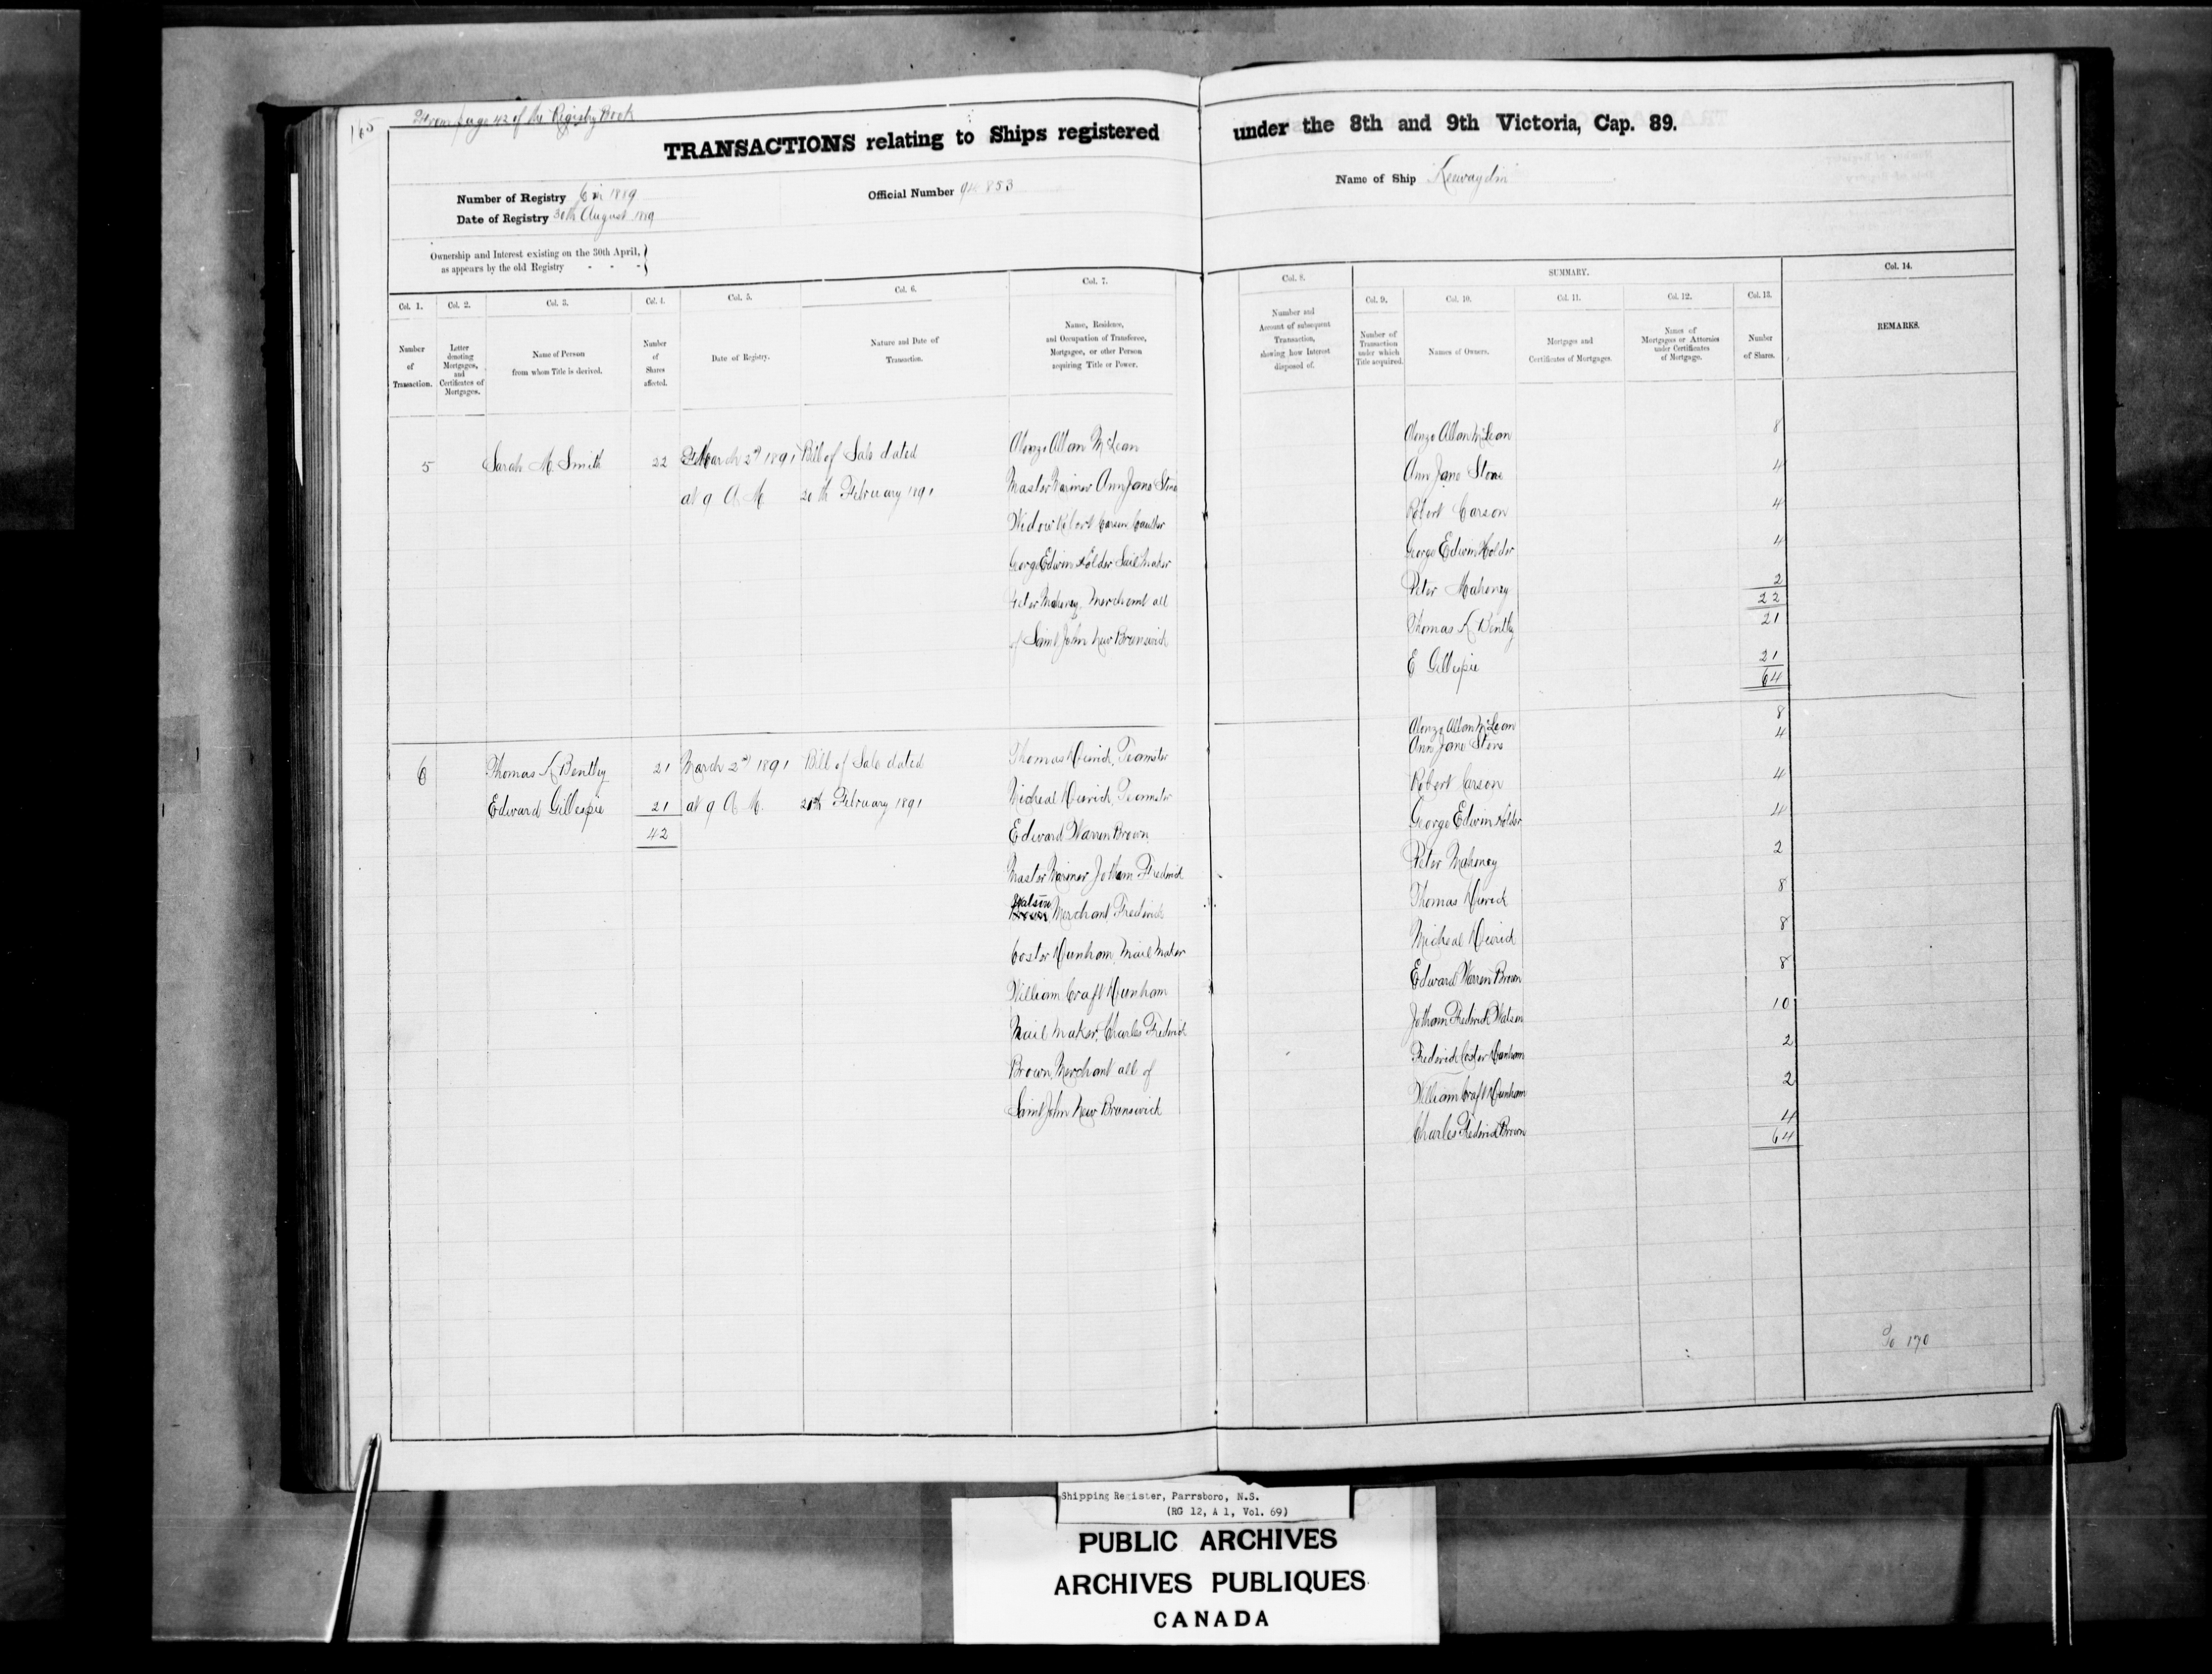 165
From page 42 of the Registry Book
TRANSACTIONS relating to Ships registered under the 8th and 9th Victoria, Cap. 89.
Number of Registry 6 in 1889
Date of Registry 30th August 1889
Official Number 94 853
Name of Ship Kewaydin
Ownership and Interest existing on the 30th April,
as appears by the old Registry - - -
Col. 1.
Number
of
Transaction.
Col. 2.
Letter
denoting
Mortgages,
and
Certificates of
Mortgages.
Col. 3.
Name of Person
from whom Title is derived.
Col. 4.
Number
of
Shares
affected.
Col. 5.
Date of Registry.
Col. 6.
Nature and Date of
Transaction.
Col. 7.
Name, Residence,
and Occupation of Transferee,
Mortgagee, or other Person
acquiring Title or Power.
Col. 8.
Number and
Account of subsequent
Transaction,
showing how Interest
disposed of.
SUMMARY.
Col. 9.
Number of
Transaction
under which
Title acquired.
Col. 10.
Names of Owners.
Col. 11.
Mortgages and
Certificates of Mortgages.
Col. 12.
Names of
Mortgagees or Attornies
under Certificates
of Mortgage.
Col. 13.
Number
of Shares.
Col. 14.
REMARKS.
5
Sarah M. Smith
22
March 2nd 1891
at 9 A. M.
Bill of Sale dated
20th February 1891
Alonzo Allan McLean
Master Mariner Ann Jane Stone
Widow Robert Carson Caulker
George Edwin Holder Sail Maker
Peter Mahoney, Merchant all
of Saint John New Brunswick
Alonzo Allan McLean 8
Ann Jane Stone 4
Robert Carson 4
George Edwin Holder 4
Peter Mahoney 2
22
Thomas K Bentley 21
E Gillespie 21
64
6
Thomas K Bentley 21
Edward Gillespie 21
42
March 2nd 1891
at 9 A. M.
Bill of Sale dated
20th February 1891
Thomas Teamster
Micheal Teamster
Edward Warren Brown
Master Mariner Jotham Fredrick
Watson
Merchant, Fredrick
Coster Dunham, Nail Maker
William Craft Dunham
Nail Maker, Charles Fredrick
Brown, Merchant all of
Saint John New Brunswick
Alonzo Allan McLean 8
Ann Jane Stone 4
Robert Carson 4
George Edwin Holder 4
Peter Mahoney 2
Thomas 8
Micheal 8
Edward Warren Brown 8
Jotham Fredrick Watson 10
Fredrick Coster Dunham 2
William Craft Dunham 2
Charles Fredrick Brown 4
64
To 170
Shipping Register, Parrsboro, N.S.
(RG 12, A 1, Vol. 69)
PUBLIC ARCHIVES
ARCHIVES PUBLIQUES
CANADA